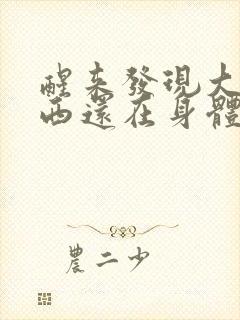 醒来發現大
西還在身體
農二少